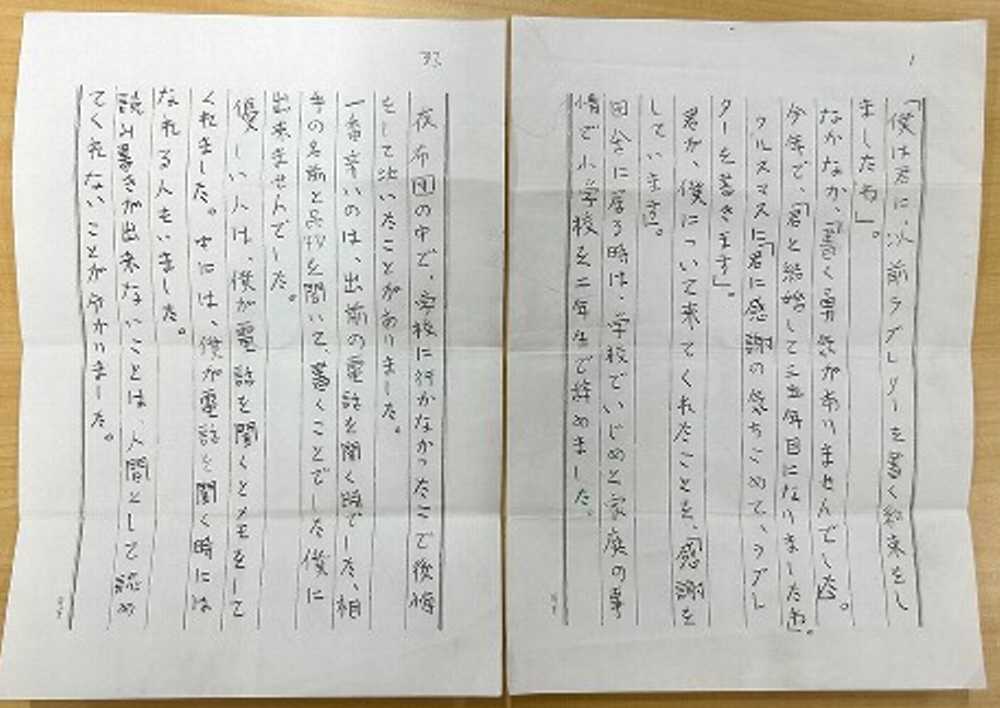 1
「僕は君に、以前ラブレターを書く約束をし
ましたね」。
なかなか、「書く勇気がありませんでした」。
今年で、「君と結婚して三五年目になりましたね」。
クルスマスに「君に感謝の気ちこめて、ラブレ
ターを書きます」。
君が、僕について来てくれたことを、「感謝を
しています」。
田舎に居る時は、学校でいじめと家庭の事
情で小学校を二年生で辞めました。
夜布団の中で、学校に行かなかったこで後悔
をして泣いたことがありました。
一番辛いのは、出前の電話を聞く時でした、相
手の名前と品物を聞いて、書くことでした僕に
出来ませんでした。
優しい人は、僕が電話を聞くとメモをして
くれました。中には、僕が電話を聞く時には
なれる人もいました。
読み書きが出来ないことは、人間として認め
てくれないことがわかりました。